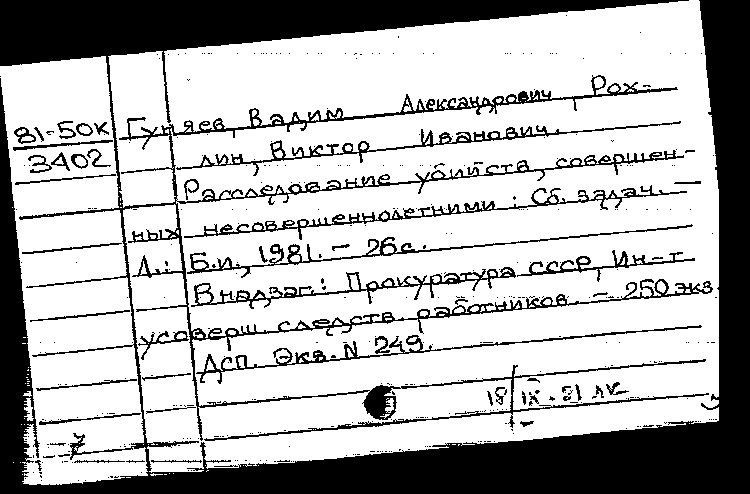 81-50к
3402
Гуняев, Вадим Александрович, Рох-
лин, Виктор Иванович.
Расследование убийств, совершен-
ных несовершеннолетними : Сб. задач. —
Л.: Б.и., 1981. - 26 с.
В надзаг.: Прокуратура СССР, Ин-т
усоверш. следств. работников. - 250 экз.
Дсп. Экз. N 249.
18/IX.81
7